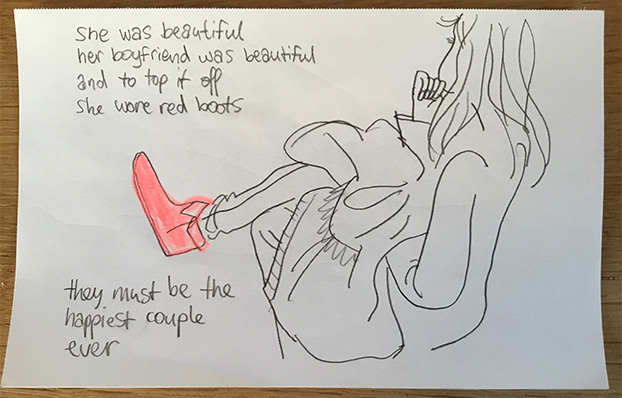 she was beautiful
her boyfriend was beautiful
and to top it off
she wore red boots
they must be the
happiest couple
ever